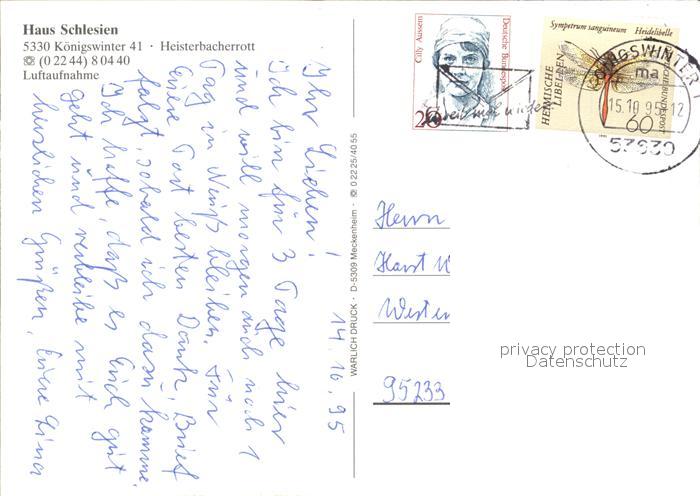 Haus Schlesien
5330 Königswinter 41 · Heisterbacherrott
☏ (0 22 44) 8 04 40
Luftaufnahme
14.10.95
Ihr Lieben!
Ich bin für 3 Tage hier
und will morgen auch noch 1
Tag in Neuß bleiben. Für
Eure Post besten Dank, Brief
folgt, sobald ich dazu komme.
Ich hoffe, daß es Euch gut
geht und verbleibe mit
herzlichen Grüßen, Eure Lina
WARLICH DRUCK · D-5309 Meckenheim · ☏ 0 22 25/40 55
Cilly Aussem
Deutsche Bundespost
20
Sympetrum sanguineum Heidelibelle
HEIMISCHE
LIBELLEN
DEUTSCHE BUNDESPOST
60
KÖNIGSWINTER
ma
15.10.95-12
Herrn
Horst
95233
privacy protection
Datenschutz